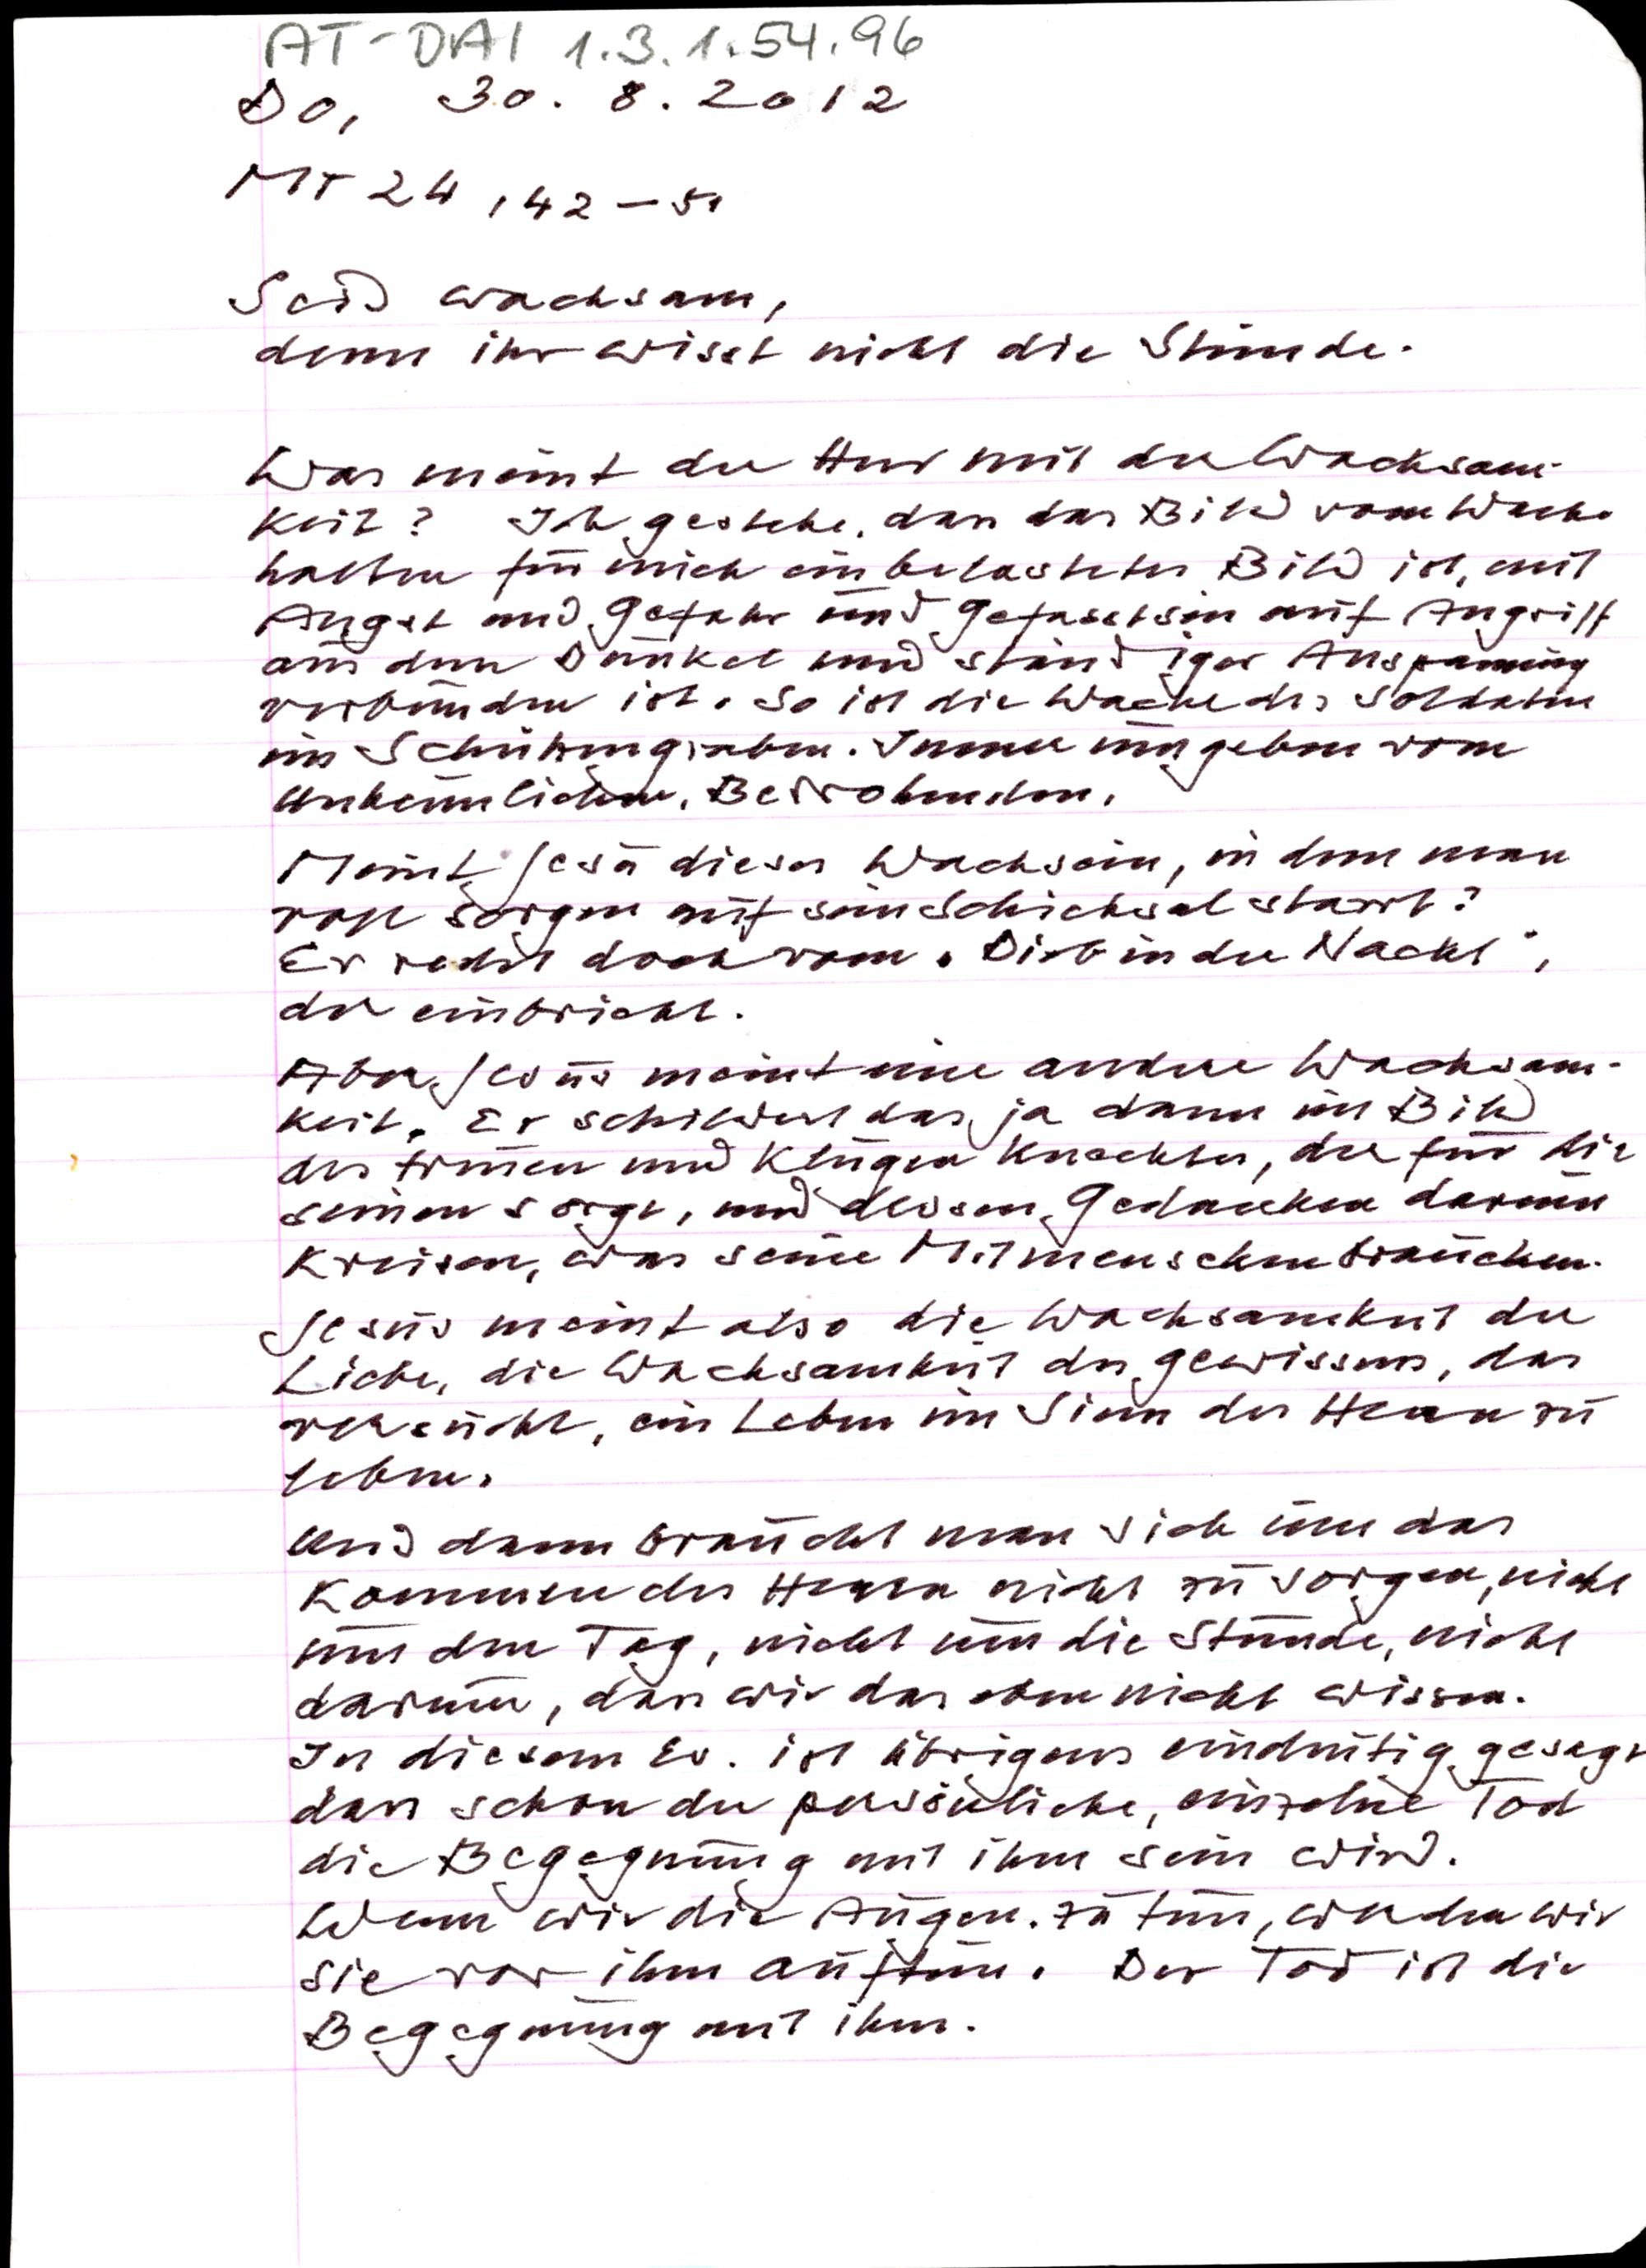 AT-DAI 1.3.1.54.96
Do, 30. 8. 2012
MT 24, 42 – 51
Seid wachsam,
denn ihr wisst nicht die Stunde.
Was meint der Herr mit der Wachsam-
keit? Ich gestehe, dass das Bild vom Wache
halten für mich ein belastetes Bild ist, mit
Angst und Gefahr und Gefasstsein auf Angriff
aus dem Dunkel und ständiger Anspannung
verbunden ist. So ist die Wache des Soldaten
im Schützengraben. Immer umgeben vom
Unheimlichen, Bedrohenden.
Meint Jesu dieses Wachsein, in dem man
voll Sorgen auf sein Schicksal starrt?
Er redet doch vom „Dieb in der Nacht",
der einbricht.
Aber Jesus meint eine andere Wachsam-
keit. Er schildert das ja dann im Bild
des treuen und klugen Knechtes, der für die
seinen sorgt, und dessen Gedanken darum
kreisen, was seine Mitmenschen brauchen.
Jesus meint also die Wachsamkeit der
Liebe, die Wachsamkeit des Gewissens, das
versucht, ein Leben im Sinn des Herrn zu
leben.
Und dann braucht man sich um das
Kommen des Herrn nicht zu sorgen, nicht
um den Tag, nicht um die Stunde, nicht
darum, dass wir das eben nicht wissen.
In diesem Ev. ist übrigens eindeutig gesagt
dass schon der persönliche, einzelne Tod
die Begegnung mit ihm sein wird.
Wenn wir die Augen zu tun, werden wir
sie vor ihm auftun. Der Tod ist die
Begegnung mit ihm.